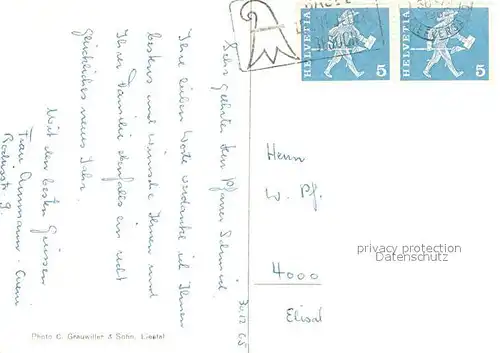 30.12.65
Sehr geehrter Herr Pfarrer Schmid,
Ihre lieben Worte verdanke ich Ihnen
bestens und wünsche Ihnen und
Ihrer Familie ebenfalls ein recht
glückliches neues Jahr.
Mit den besten Grüssen
Frau
Photo C. Grauwiller & Sohn, Liestal
HELVETIA 5
HELVETIA 5
Herrn
W. Pf.
4000
privacy protection
Datenschutz